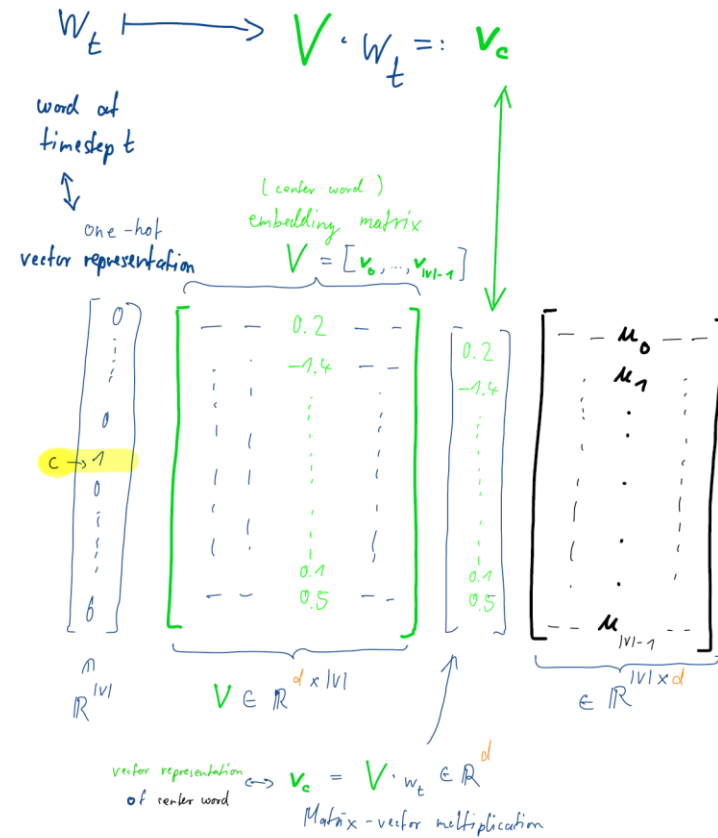 W_t ⟼ V · W_t =: v_c
word at
timestep t
(center word)
embedding matrix
one-hot
vector representation
V = [v_0, ..., v_|V|-1]
0
0
c → 1
0
0
0.2
-1.4
0.1
0.5
0.2
-1.4
0.1
0.5
u_0
u_1
u_|V|-1
ℝ^|V|
V ∈ ℝ^d×|V|
∈ ℝ^|V|×d
vector representation
of center word
↔ v_c = V · w_t ∈ ℝ^d
Matrix-vector meltiplication